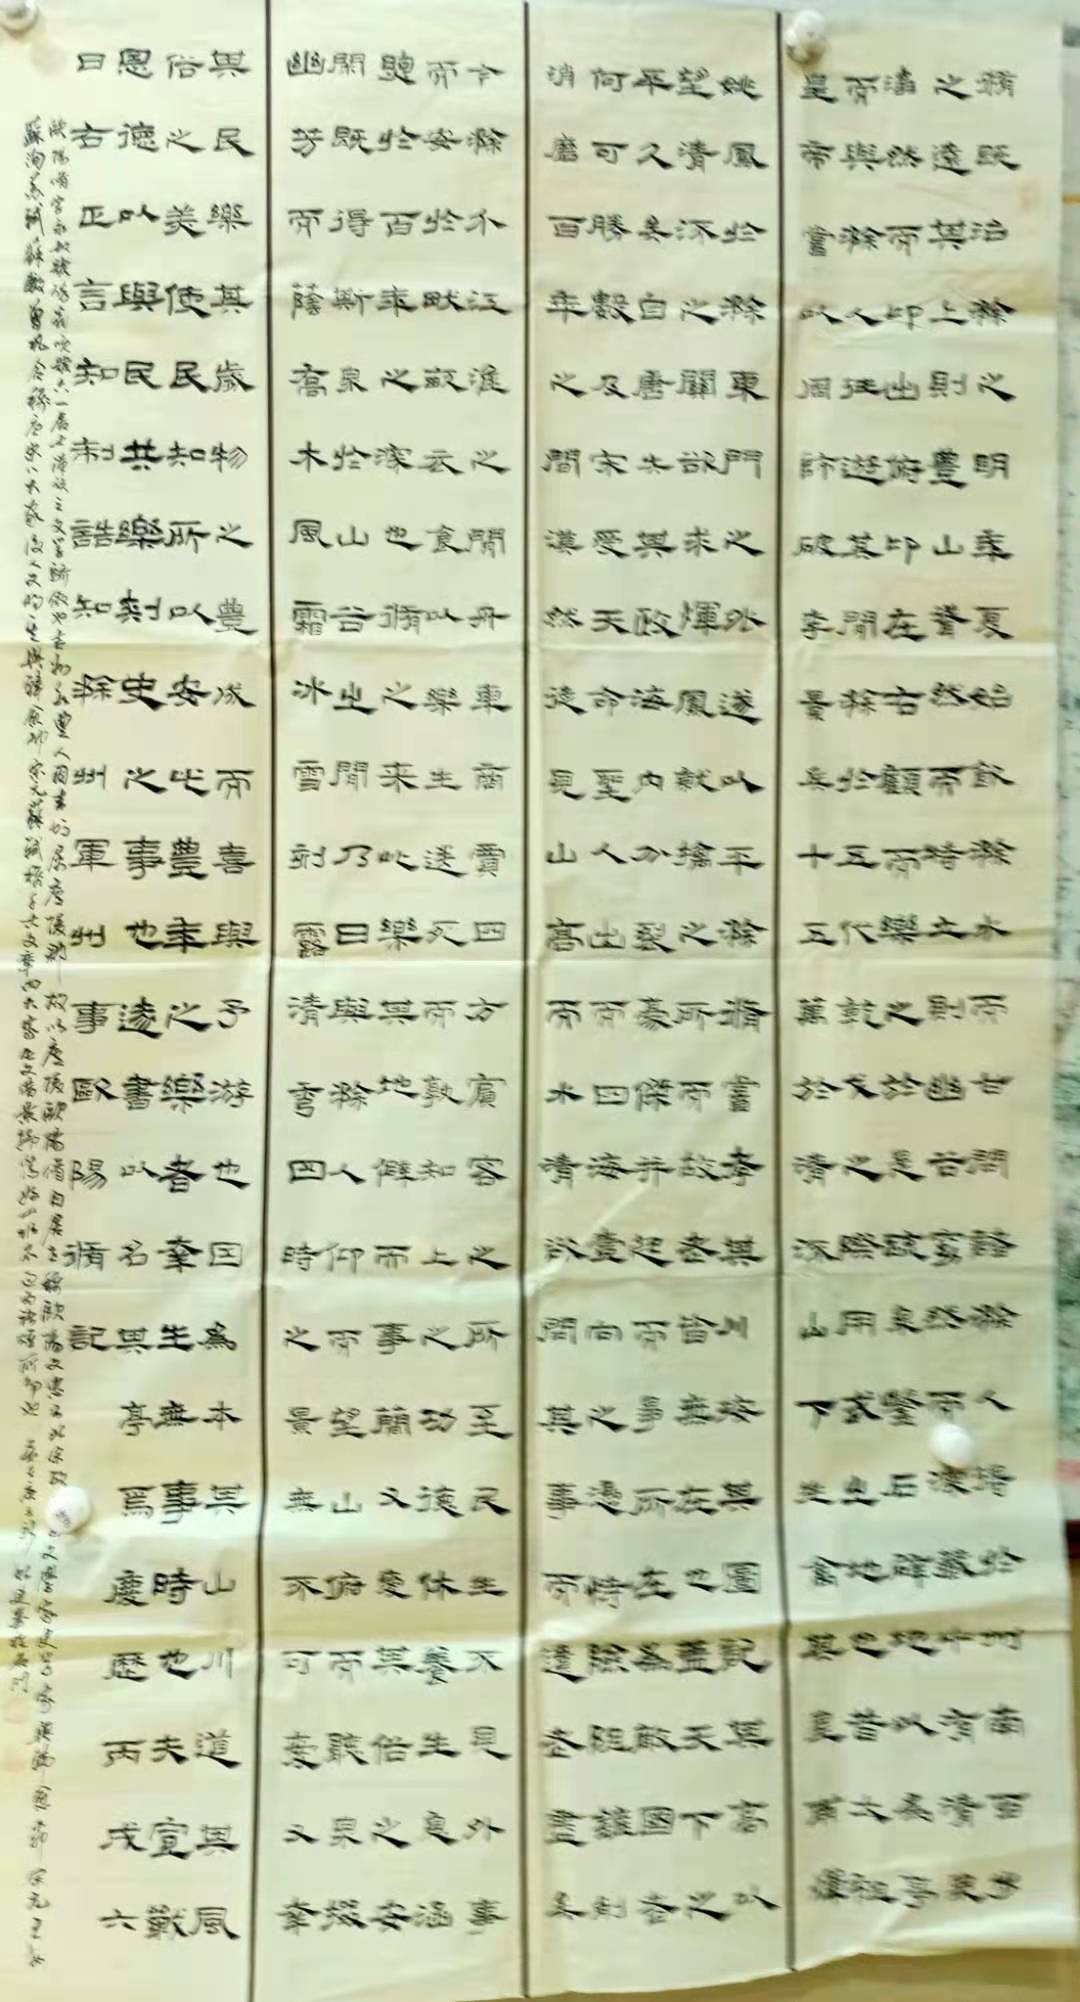 脩既治滁之明年夏始飲滁水而甘問諸滁人得於州南百步
之遠其上則豐山聳然而特立則幽谷窈然而深藏中有清泉
滃然而仰出俯仰左右顧而樂之於是疏泉鑿石辟地以為亭
而與滁人往遊其間滁於五代乾戈之際用武之地也昔太祖
皇帝嘗以周師破李景兵十五萬於清流山下生擒其皇甫暉
姚鳳於滁東門之外遂以平滁脩嘗考其川按其圖記其高以
望清流之關欲求暉鳳就擒之所而故老皆無在也蓋天下之
平久矣自唐失其政海內分裂豪傑并起而爭所在為敵國者
何可勝數及宋受天命聖人出而四海壹向之憑恃險阻剗削
消磨百年之間漠然徒見山高而水清欲問其事而遺老盡矣
今滁介江淮之間舟車商賈四方賓客之所至民生不見外事
而安於畎畝衣食以樂生送死而敦知上之功德休養生息涵
煦於百年之深也脩之來此樂其地僻而事簡又愛其俗之安
閒既得斯泉於山谷之間乃日與滁人仰而望山俯而聽泉掇
幽芳而蔭喬木風霜冰雪刻露清秀四時之景無不可愛又幸
其民樂其歲物之豐成而喜與予游也因為本其山川道其風
俗之美使民知所以安此豐年之樂者幸生無事時也夫宣
恩德以與民共樂刺史之事也遂書以名其亭焉慶曆丙戌六
曰右正言知制誥知滁州軍州事歐陽脩記
歐陽脩字永叔號醉翁晚號六一居士漢族 故以廬陵歐陽脩自居
蘇洵蘇軾蘇轍曾鞏合稱唐宋八大家